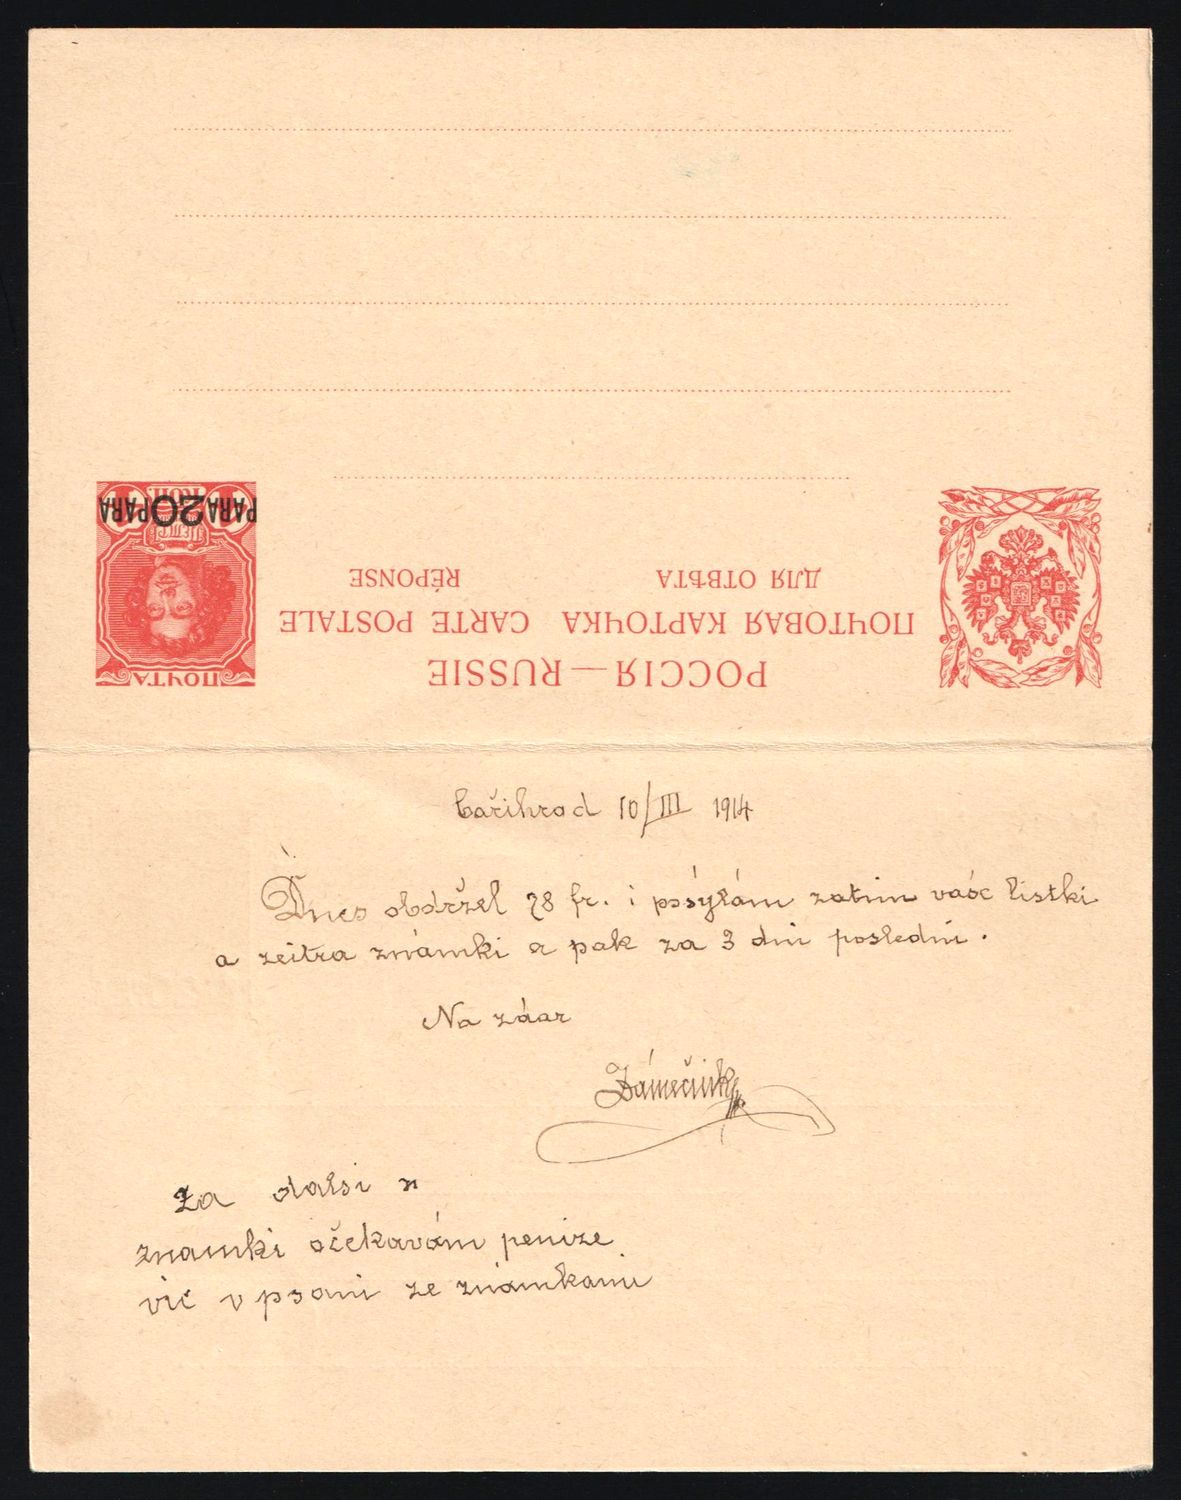 РОССІЯ — RUSSIE
ПОЧТОВАЯ КАРТОЧКА CARTE POSTALE
ДЛЯ ОТВѢТА RÉPONSE
ПОЧТА
PARA 20 PARA
КОП
Cařihrad 10/III 1914
Dnes obdržel 78 fr. i posýlám zatim vaše listki
a zeitra známki a pak za 3 dni poslední.
Na zdar
Zámečnik
Za dalsi
znamki očekavám penize
vic v psani ze známkami